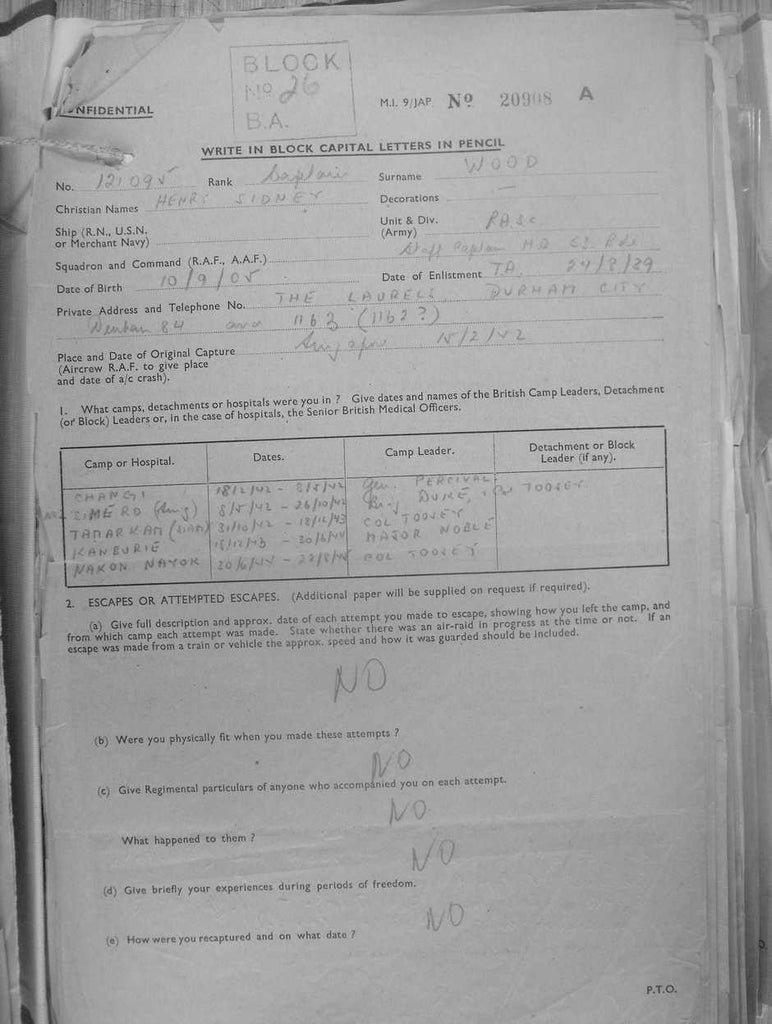 BLOCK
No 26
B.A.
NFIDENTIAL
M.I. 9/JAP. No 20908 A
WRITE IN BLOCK CAPITAL LETTERS IN PENCIL
No. 121095 Rank Captain Surname WOOD
Christian Names HENRY SIDNEY Decorations —
Ship (R.N., U.S.N. or Merchant Navy)
Unit & Div. (Army) RASC
Staff Captain HQ
Squadron and Command (R.A.F., A.A.F.)
Date of Birth 10/9/05 Date of Enlistment TA 24/8/39
Private Address and Telephone No. THE LAURELS, DURHAM CITY
84 1163 (1162?)
Place and Date of Original Capture Singapore 15/2/42
(Aircrew R.A.F. to give place
and date of a/c crash).
1. What camps, detachments or hospitals were you in ? Give dates and names of the British Camp Leaders, Detachment
(or Block) Leaders or, in the case of hospitals, the Senior British Medical Officers.
Camp or Hospital. Dates. Camp Leader. Detachment or Block Leader (if any).
CHANGI 18/2/42 - 8/5/42 Gen. PERCIVAL
8/5/42 - 26/10/42 Brig DUKE, TOOSEY
TAMARKAN (SIAM) 31/10/42 - 18/12/43 COL TOOSEY
KANBURIE 18/12/43 - 30/6/44 MAJOR NOBLE
NAKON NAYOK 30/6/44 - COL TOOSEY
2. ESCAPES OR ATTEMPTED ESCAPES. (Additional paper will be supplied on request if required).
(a) Give full description and approx. date of each attempt you made to escape, showing how you left the camp, and
from which camp each attempt was made. State whether there was an air-raid in progress at the time or not. If an
escape was made from a train or vehicle the approx. speed and how it was guarded should be included.
NO
(b) Were you physically fit when you made these attempts ?
NO
(c) Give Regimental particulars of anyone who accompanied you on each attempt.
NO
What happened to them ?
NO
(d) Give briefly your experiences during periods of freedom.
NO
(e) How were you recaptured and on what date ?
P.T.O.